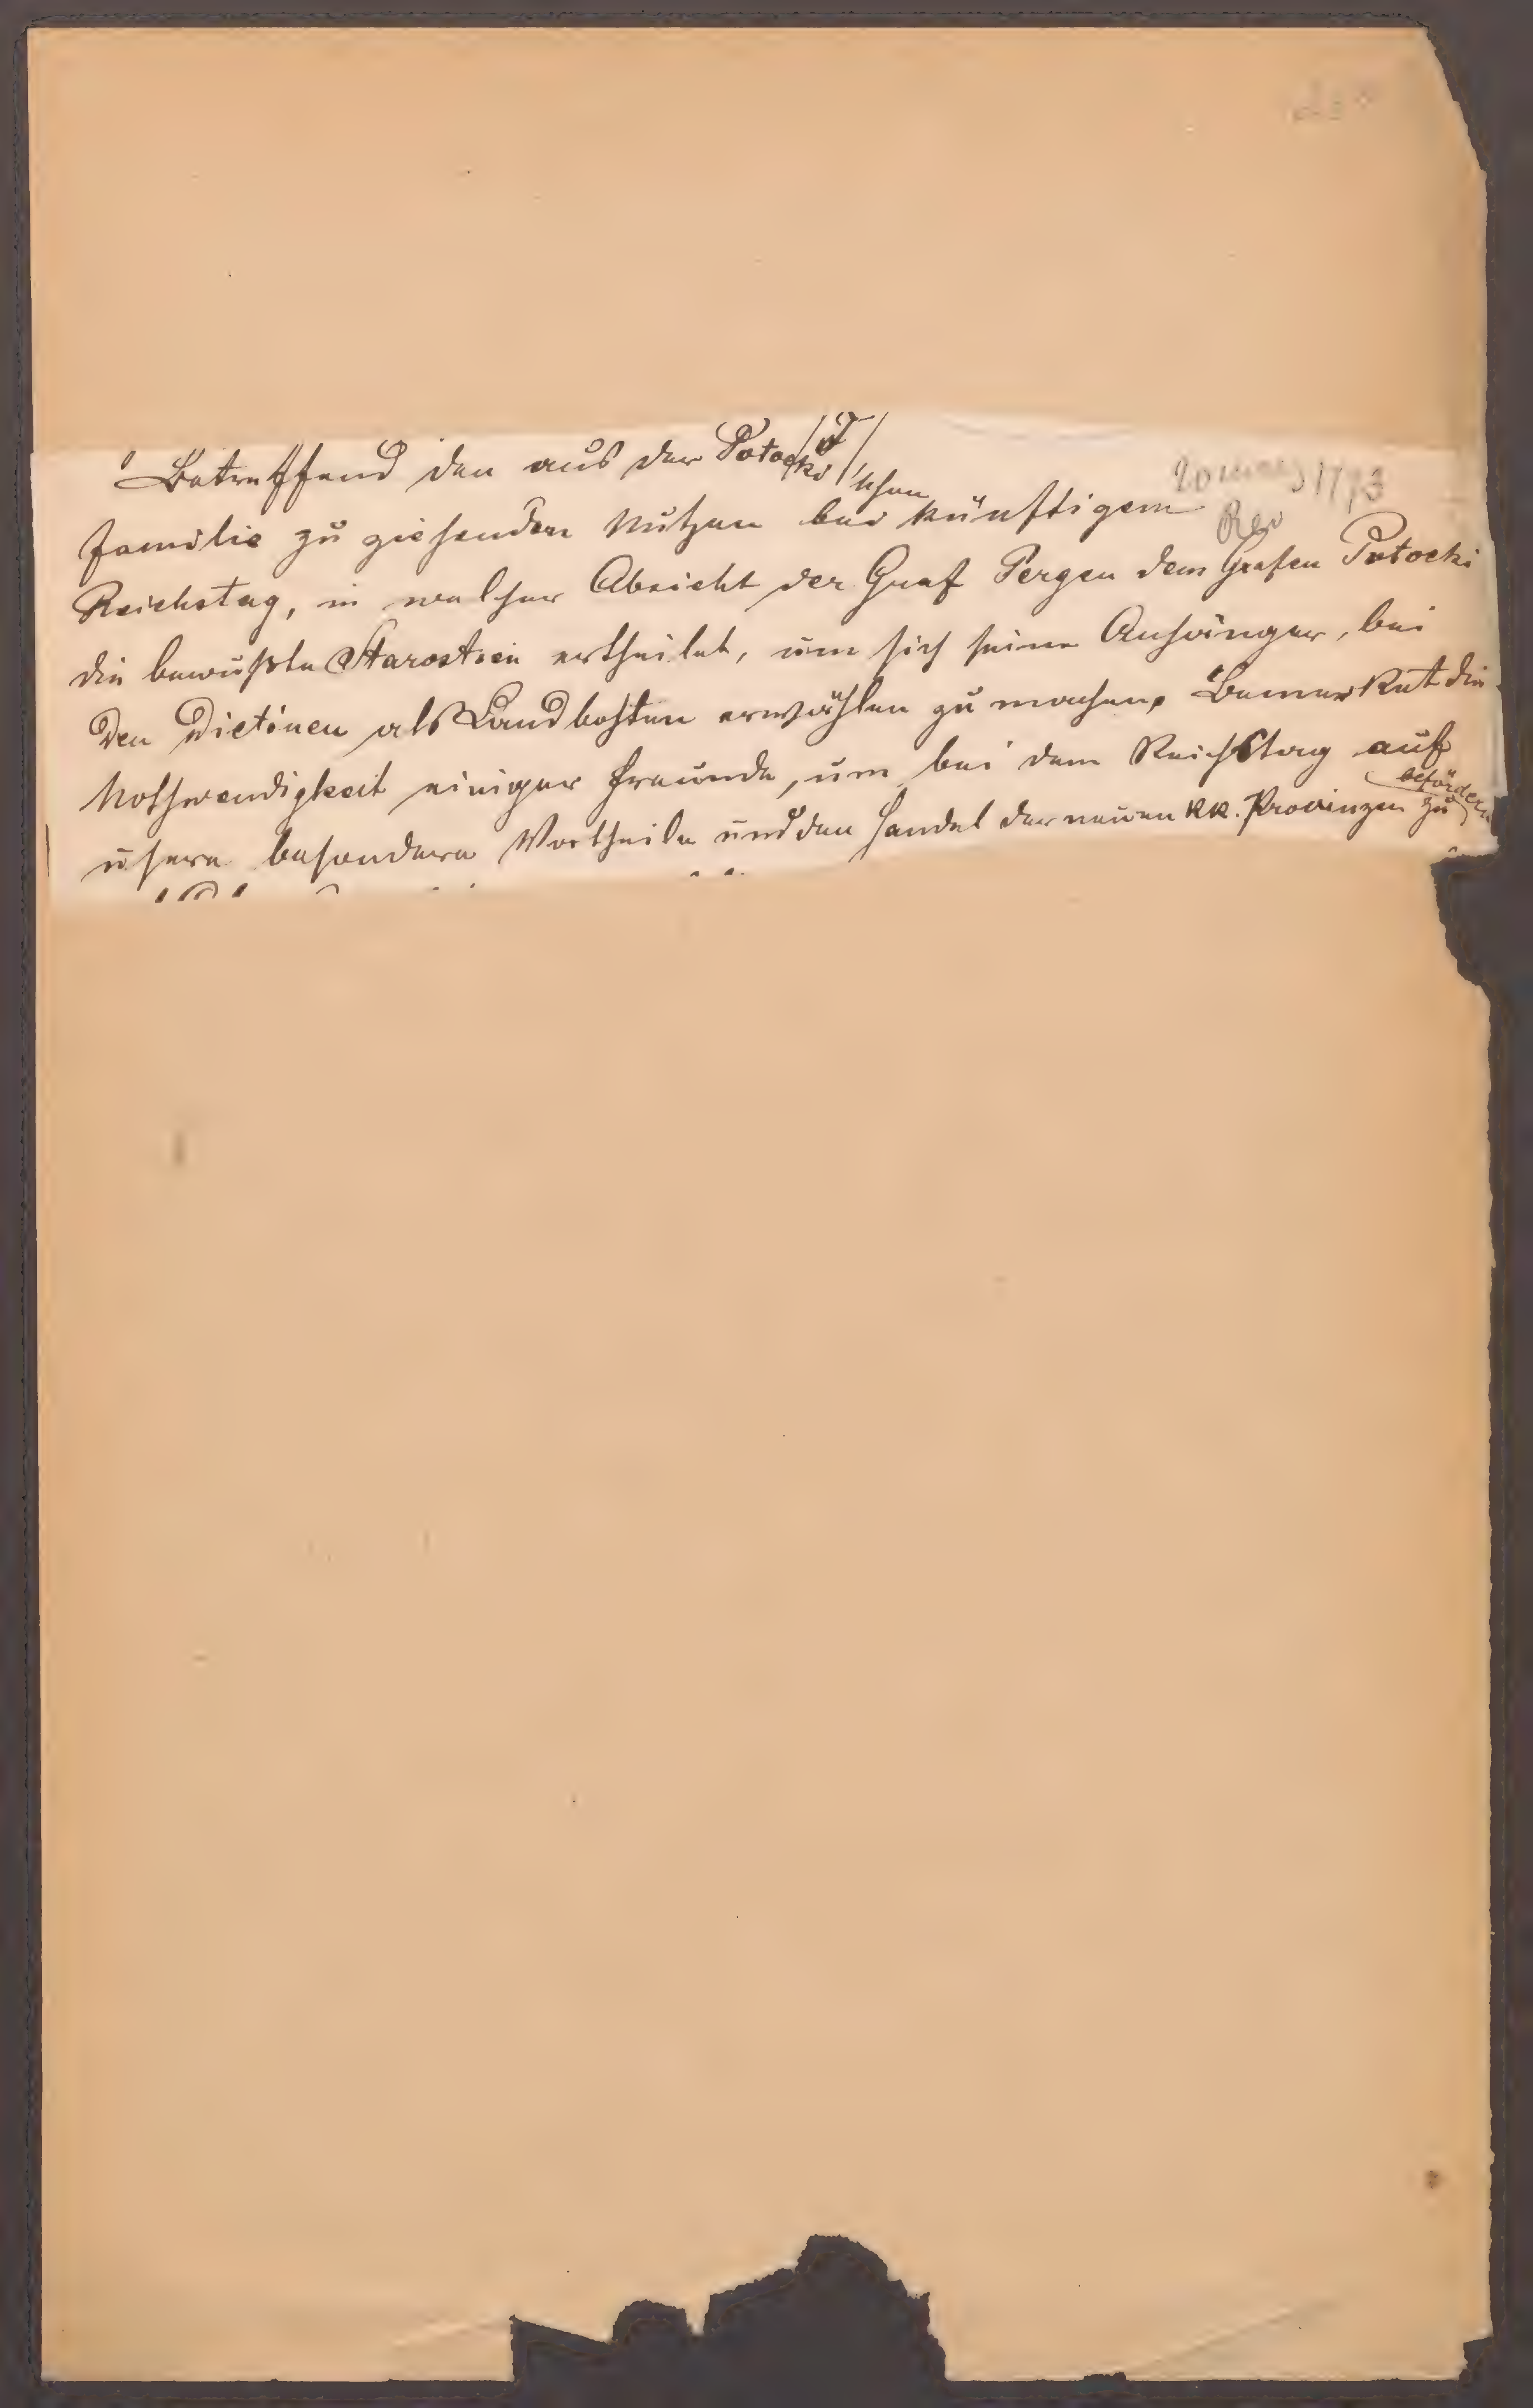 Betreffend den aus der Potocki'schen
20 März 1773
Familie zu ziehenden Nutzen bei künftigem
Reichstag, in welcher Absicht der Graf Pergen dem Grafen Potocki
die bewußte Starostei ertheilet, um sich seine Anhänger, bei
den Dietinen als Landbothen erwählen zu machen, Bemerket die
Nothwendigkeit einiger Freunde, um bei dem Reichstag auf
usere besondere Vortheile und den Handel der neuen KK. Provinzen zu
befördern